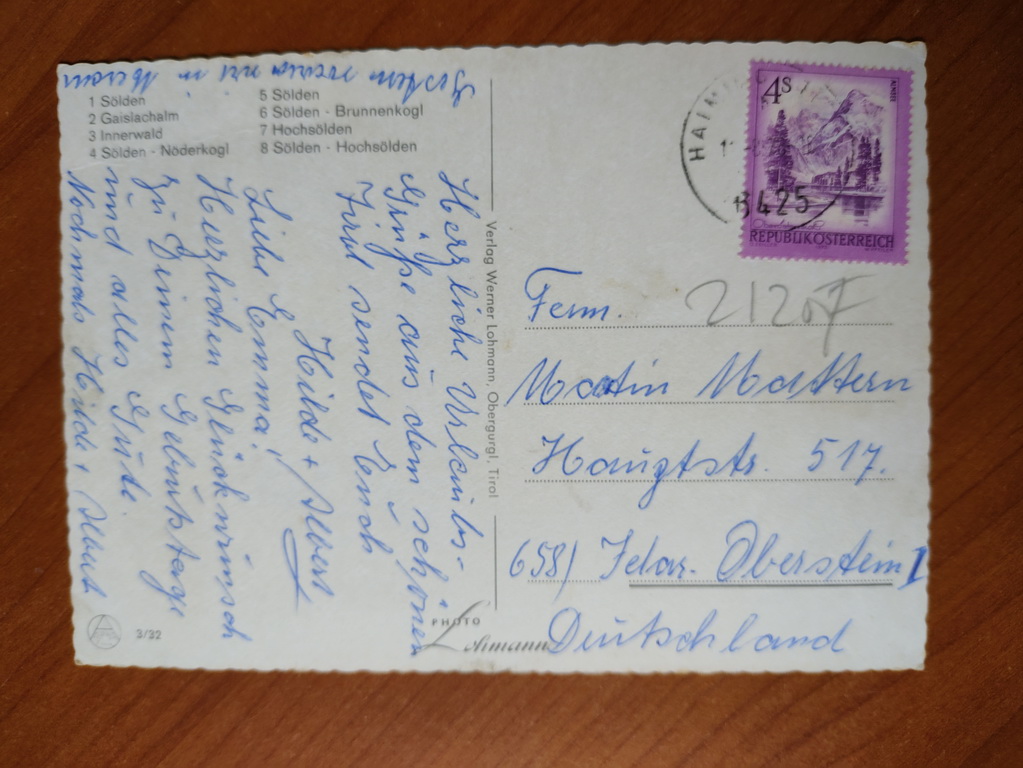 Gestern waren wir in Meran
1 Sölden
2 Gaislachalm
3 Innerwald
4 Sölden - Nöderkogl
5 Sölden
6 Sölden - Brunnenkogl
7 Hochsölden
8 Sölden - Hochsölden
Herzliche Urlaubs-
Grüße aus dem schönen
Tirol sendet Euch
Hilde + Albert
Liebe Emma!
Herzlichen Glückwunsch
zu Deinem Geburtstage
und alles Gute.
Nochmals Hilde + Albert
Verlag Werner Lohmann, Obergurgl, Tirol
3/32
PHOTO
Lohmann
4S
REPUBLIK ÖSTERREICH
6425
2120F
Fam.
Martin Mattern
Hauptstr. 517.
6581 Idar-Oberstein 1
Deutschland